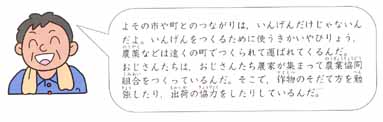 よその市や町とのつながりは、いんげんだけじゃないん
だよ。いんげんをつくるために使うきかいやひりょう、
農薬などは遠くの町でつくられて運ばれてくるんだ。
おじさんたちは、おじさんたち農家が集まって農業協同
組合をつくっているんだ。そこで、作物のそだて方を勉
強したり、出荷の協力をしたりしているんだ。